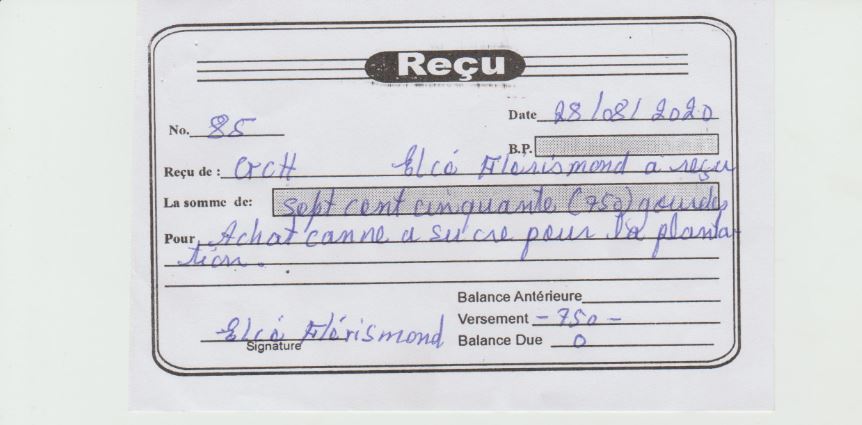 Reçu
Date 28/08/2020
No. 85
B.P.
Reçu de : Elcé Flérismond a reçu
La somme de: sept cent cinquante (750) gourdes
Pour Achat canne a sucre pour la planta-
tion.
Balance Antérieure
Versement - 750 -
Elcé Flérismond
Signature
Balance Due 0